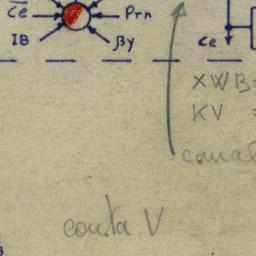 Ce Prn
IB βγ Ce
XWB=
KV =
canal
conta V